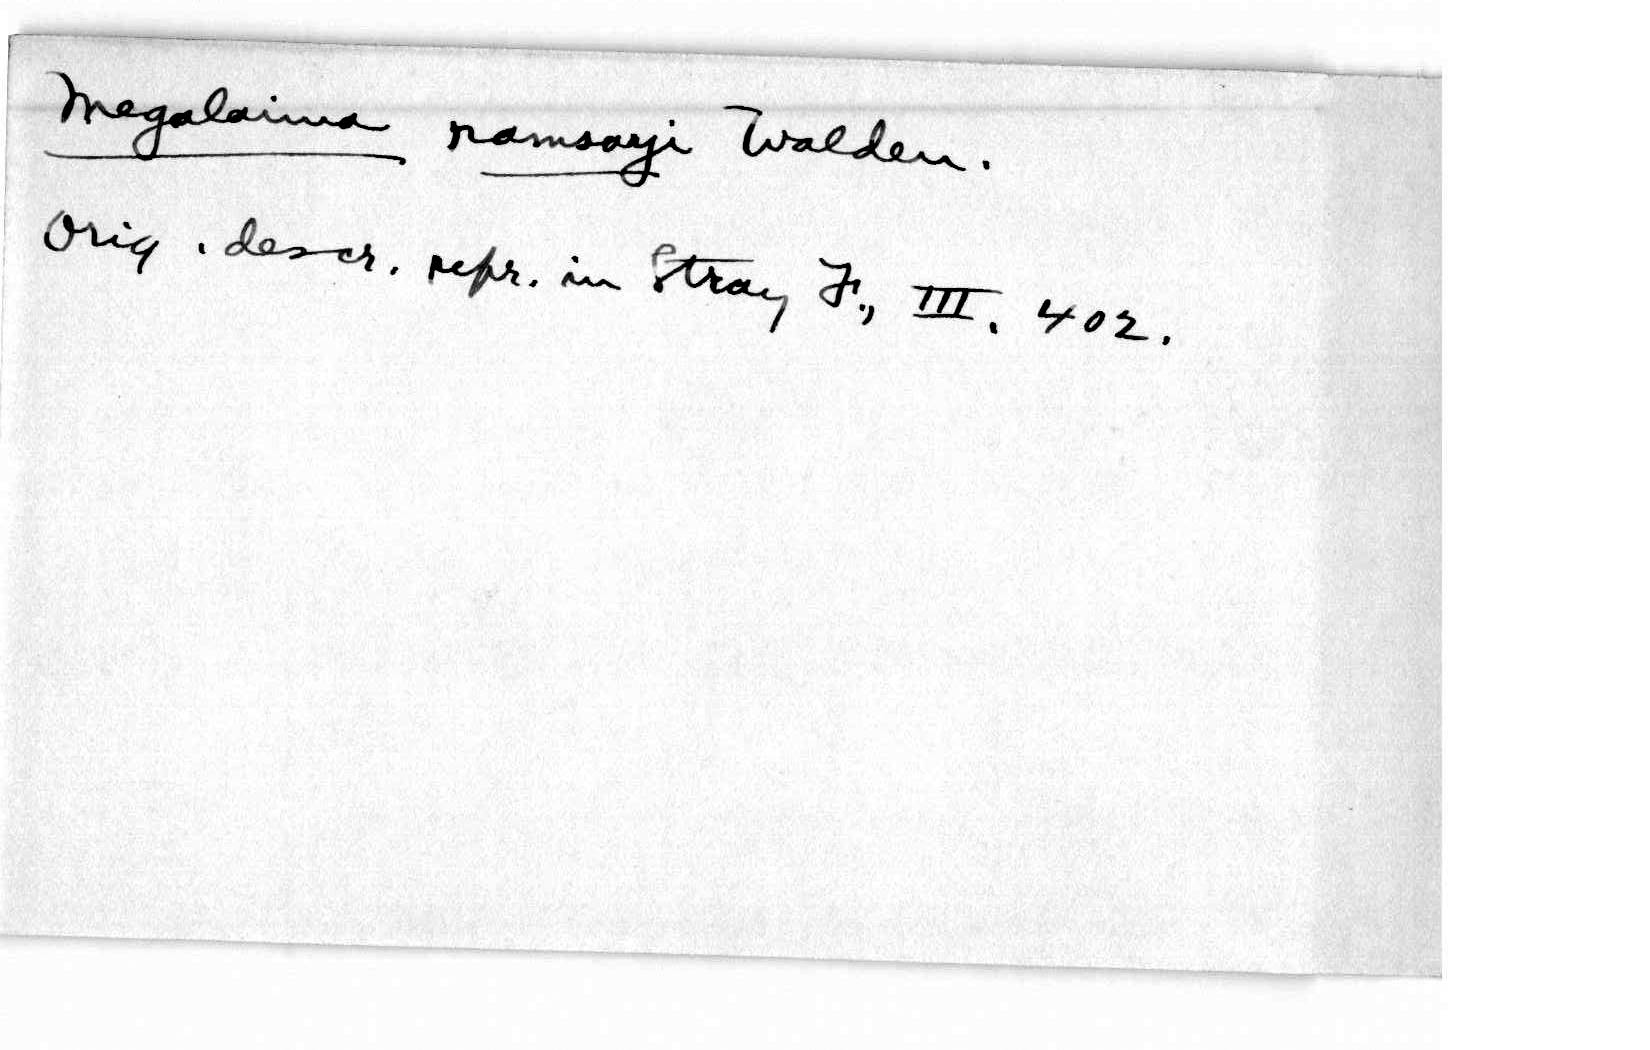 Megalaima ramsayi Walden.
Orig. descr. repr. in Stray F., III. 402.